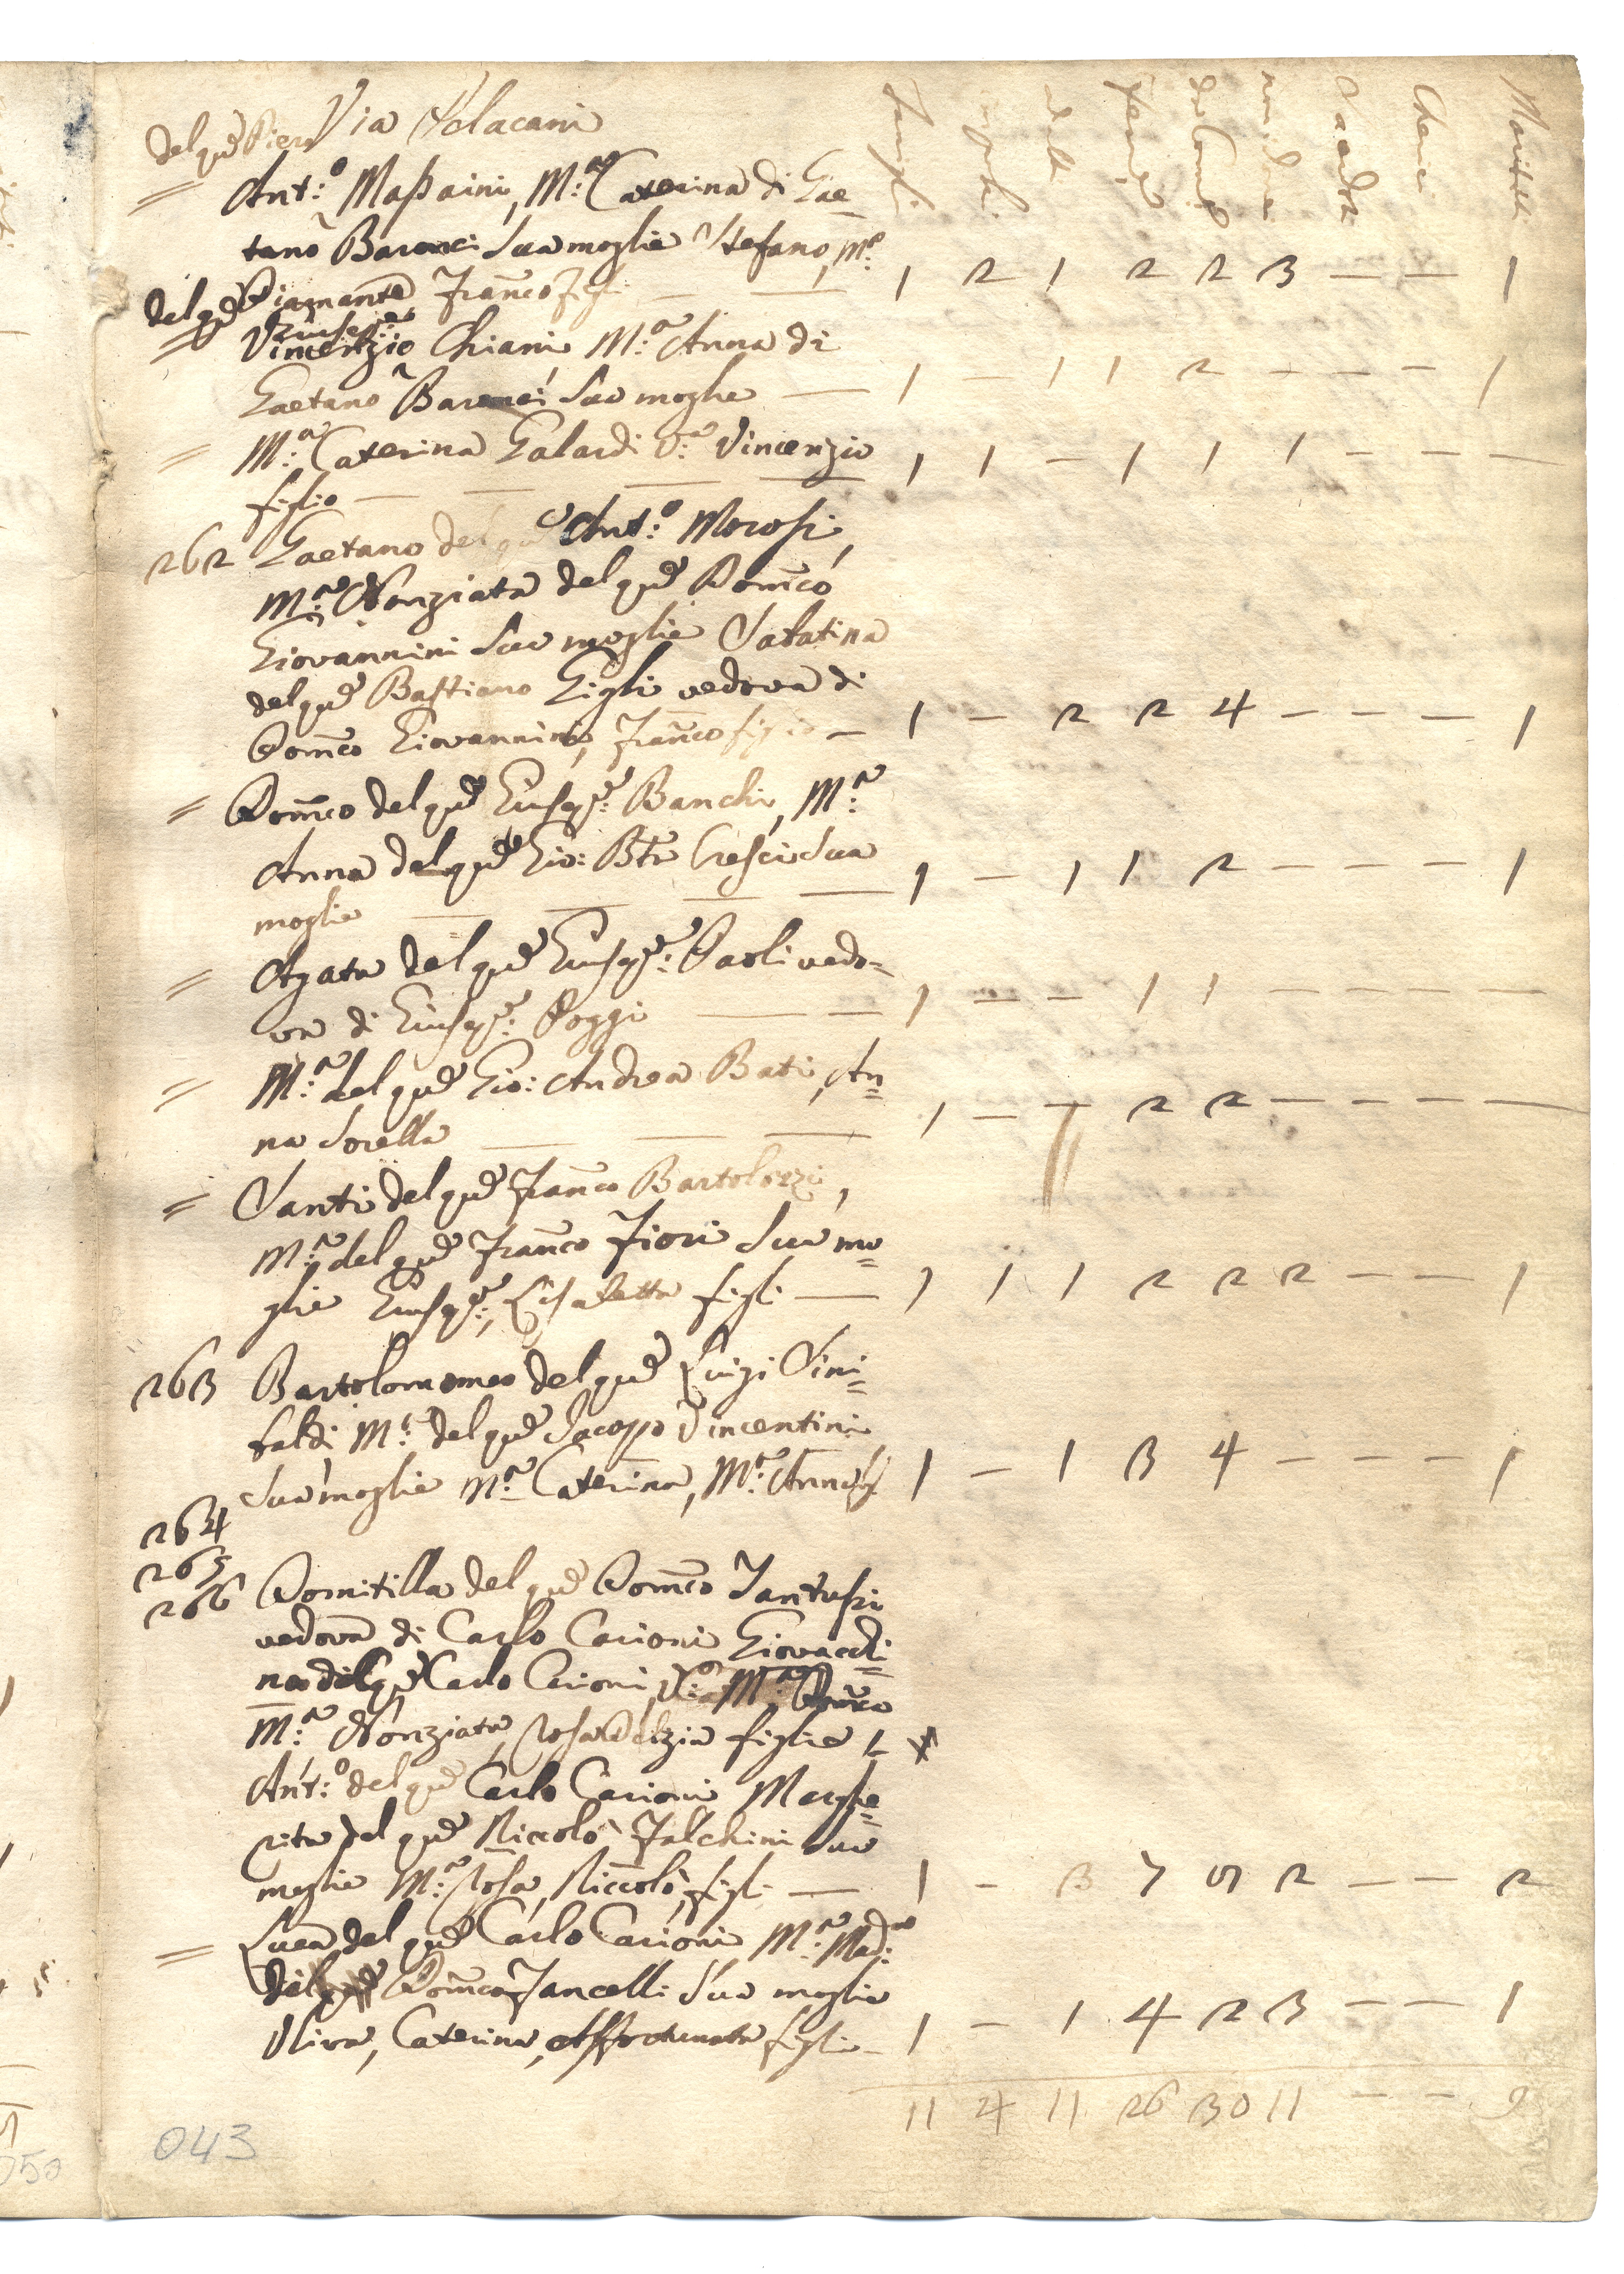 Famigli
impub.
adulti
Femi.
da Comu.
non da Com.
Sacerdoti
Cherici
Maritati
Via Pelacani
del qm Piero
= Ant:o Massaini, M:a Caterina di Gae=
tano Baronci Sua moglie Stefano, M:a
Diamante Franco figli — — 1 2 1 2 2 3 — — 1
del qm Giuseppe
= Vincenzio Chiani M:a Anna di
Gaetano Baronci Sua moglie — 1 — 1 1 2 — — — 1
= M:a Caterina Galardi V:a Vincenzio 1 1 — 1 1 1 — — —
figlio — — — —
262 Gaetano del qm Ant:o Morosi,
M:a Nonziata del qm Domco
Giovannini Sua moglie Sabatina
del qm Bastiano Gigli vedova di
Domco Giovannini, Franco figlio — 1 — 2 2 4 — — — 1
= Domco del qm Giuspe: Banchi, M:a
Anna del qm Gio: Bta Cresci Sua
moglie — — — — 1 — 1 1 2 — — — 1
= Agata del qm Giuspe: Paoli vedo=
va di Giuspe: Poggi — — 1 — — 1 1 — — — —
= M:a del qm Gio: Andrea Bati, An=
na Sorella — — — 1 — — 2 2 — — — —
= Santi del qm Franco Bartolozzi,
M:a del qm Franco Fiori Sua mo=
glie Giuspe:, Lisabetta figli — 1 1 1 2 2 2 — — 1
263 Bartolommeo del qm Luigi Sini=
baldi M:a del qm Jacopo Vincentini
Sua moglie M:a Caterina, M:a Anna fig. 1 — 1 3 4 — — — 1
264
265
266 Domitilla del qm Domco Fantussi
vedova di Carlo Carioni Giovacchi=
no del qm Carlo Carioni, M:a Domca
M:a Nonziata, Rosa Delzia figlie
Ant:o del qm Carlo Carioni Marghe=
rita del qm Niccolò Falchini Sua
moglie M:a Rosa, Niccolò, figli — 1 — 3 7 9 2 — — 2
= Luca del qm Carlo Carioni M:a Mad:na
di Domco Fancelli Sua moglie
Uliva, Caterina, Affortunata figli — 1 — 1 4 2 3 — — 1
11 4 11 26 30 11 — — 9
043
050